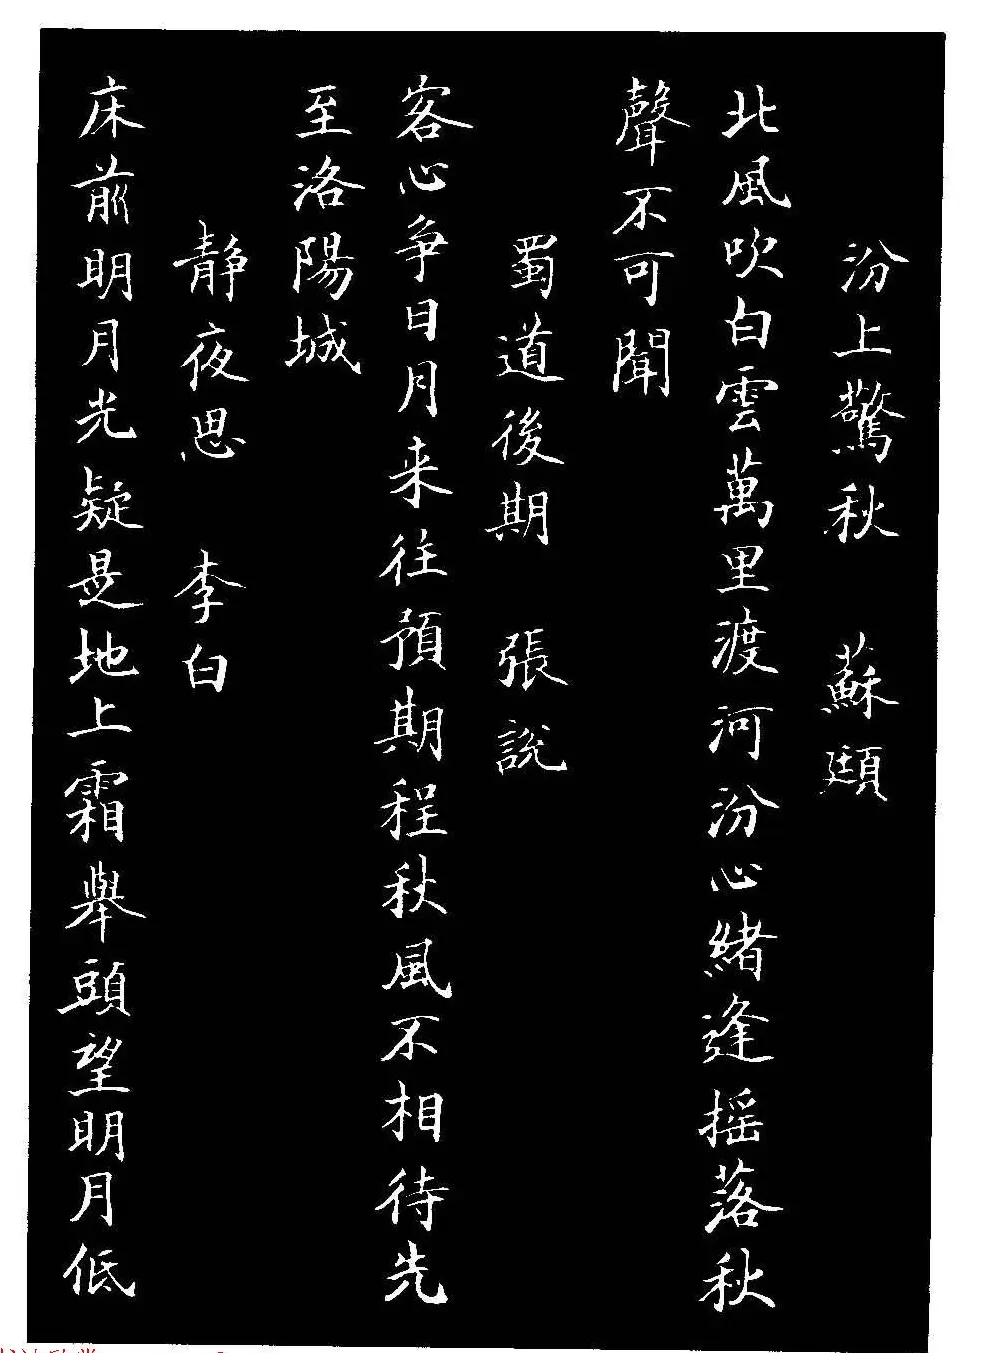 汾上驚秋 蘇頲
北風吹白雲萬里渡河汾心緒逢摇落秋
聲不可聞
蜀道後期 張説
客心争日月来往預期程秋風不相待先
至洛陽城
靜夜思 李白
床前明月光疑是地上霜舉頭望明月低